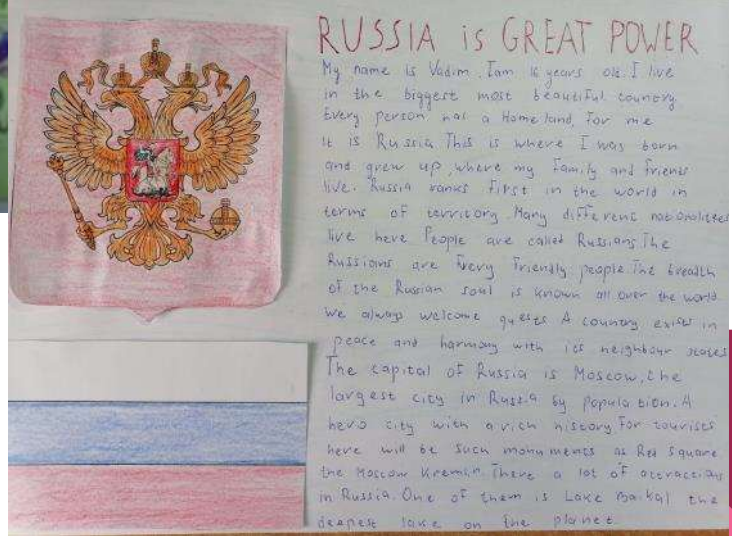 RUSSIA is GREAT POWER
My name is Vadim. I am 16 years old. I live
in the biggest most beautiful country.
Every person has a Homeland. For me
it is Russia. This is where I was born
and grew up, where my family and friends
live. Russia ranks first in the world in
terms of territory. Many different nationalities
live here. People are called Russians. The
Russians are very friendly people. The breadth
of the Russian soul is known all over the world
we always welcome guests A country exists in
peace and harmony with its neighbour states
The capital of Russia is Moscow, the
largest city in Russia by population. A
hero city with a rich history For tourists
here will be such monuments as Red Square
the Moscow Kremlin. There a lot of attractions
in Russia. One of them is Lake Baikal the
deepest lake on the planet.